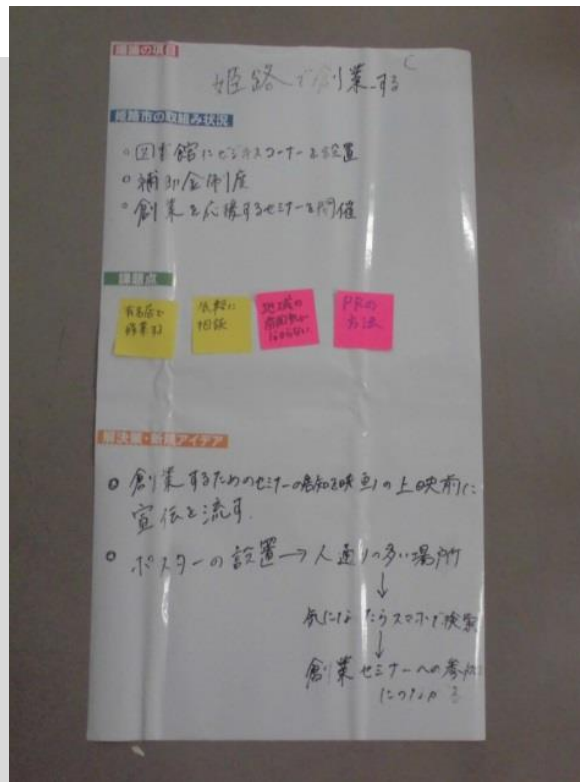 議論の項目
姫路で創業する
C
姫路市の取組み状況
○図書館にビジネスコーナーを設置
○補助金制度
○創業を応援するセミナーを開催
課題点
有名店で
修業する
気軽に
相談
地域の
雰囲気が
わからない
PRの
方法
解決策・新規アイデア
○創業するためのセミナーの告知を映画の上映前に
宣伝を流す.
○ポスターの設置→人通りの多い場所
↓
気になったらスマホで検索
↓
創業セミナーへの参加
につながる